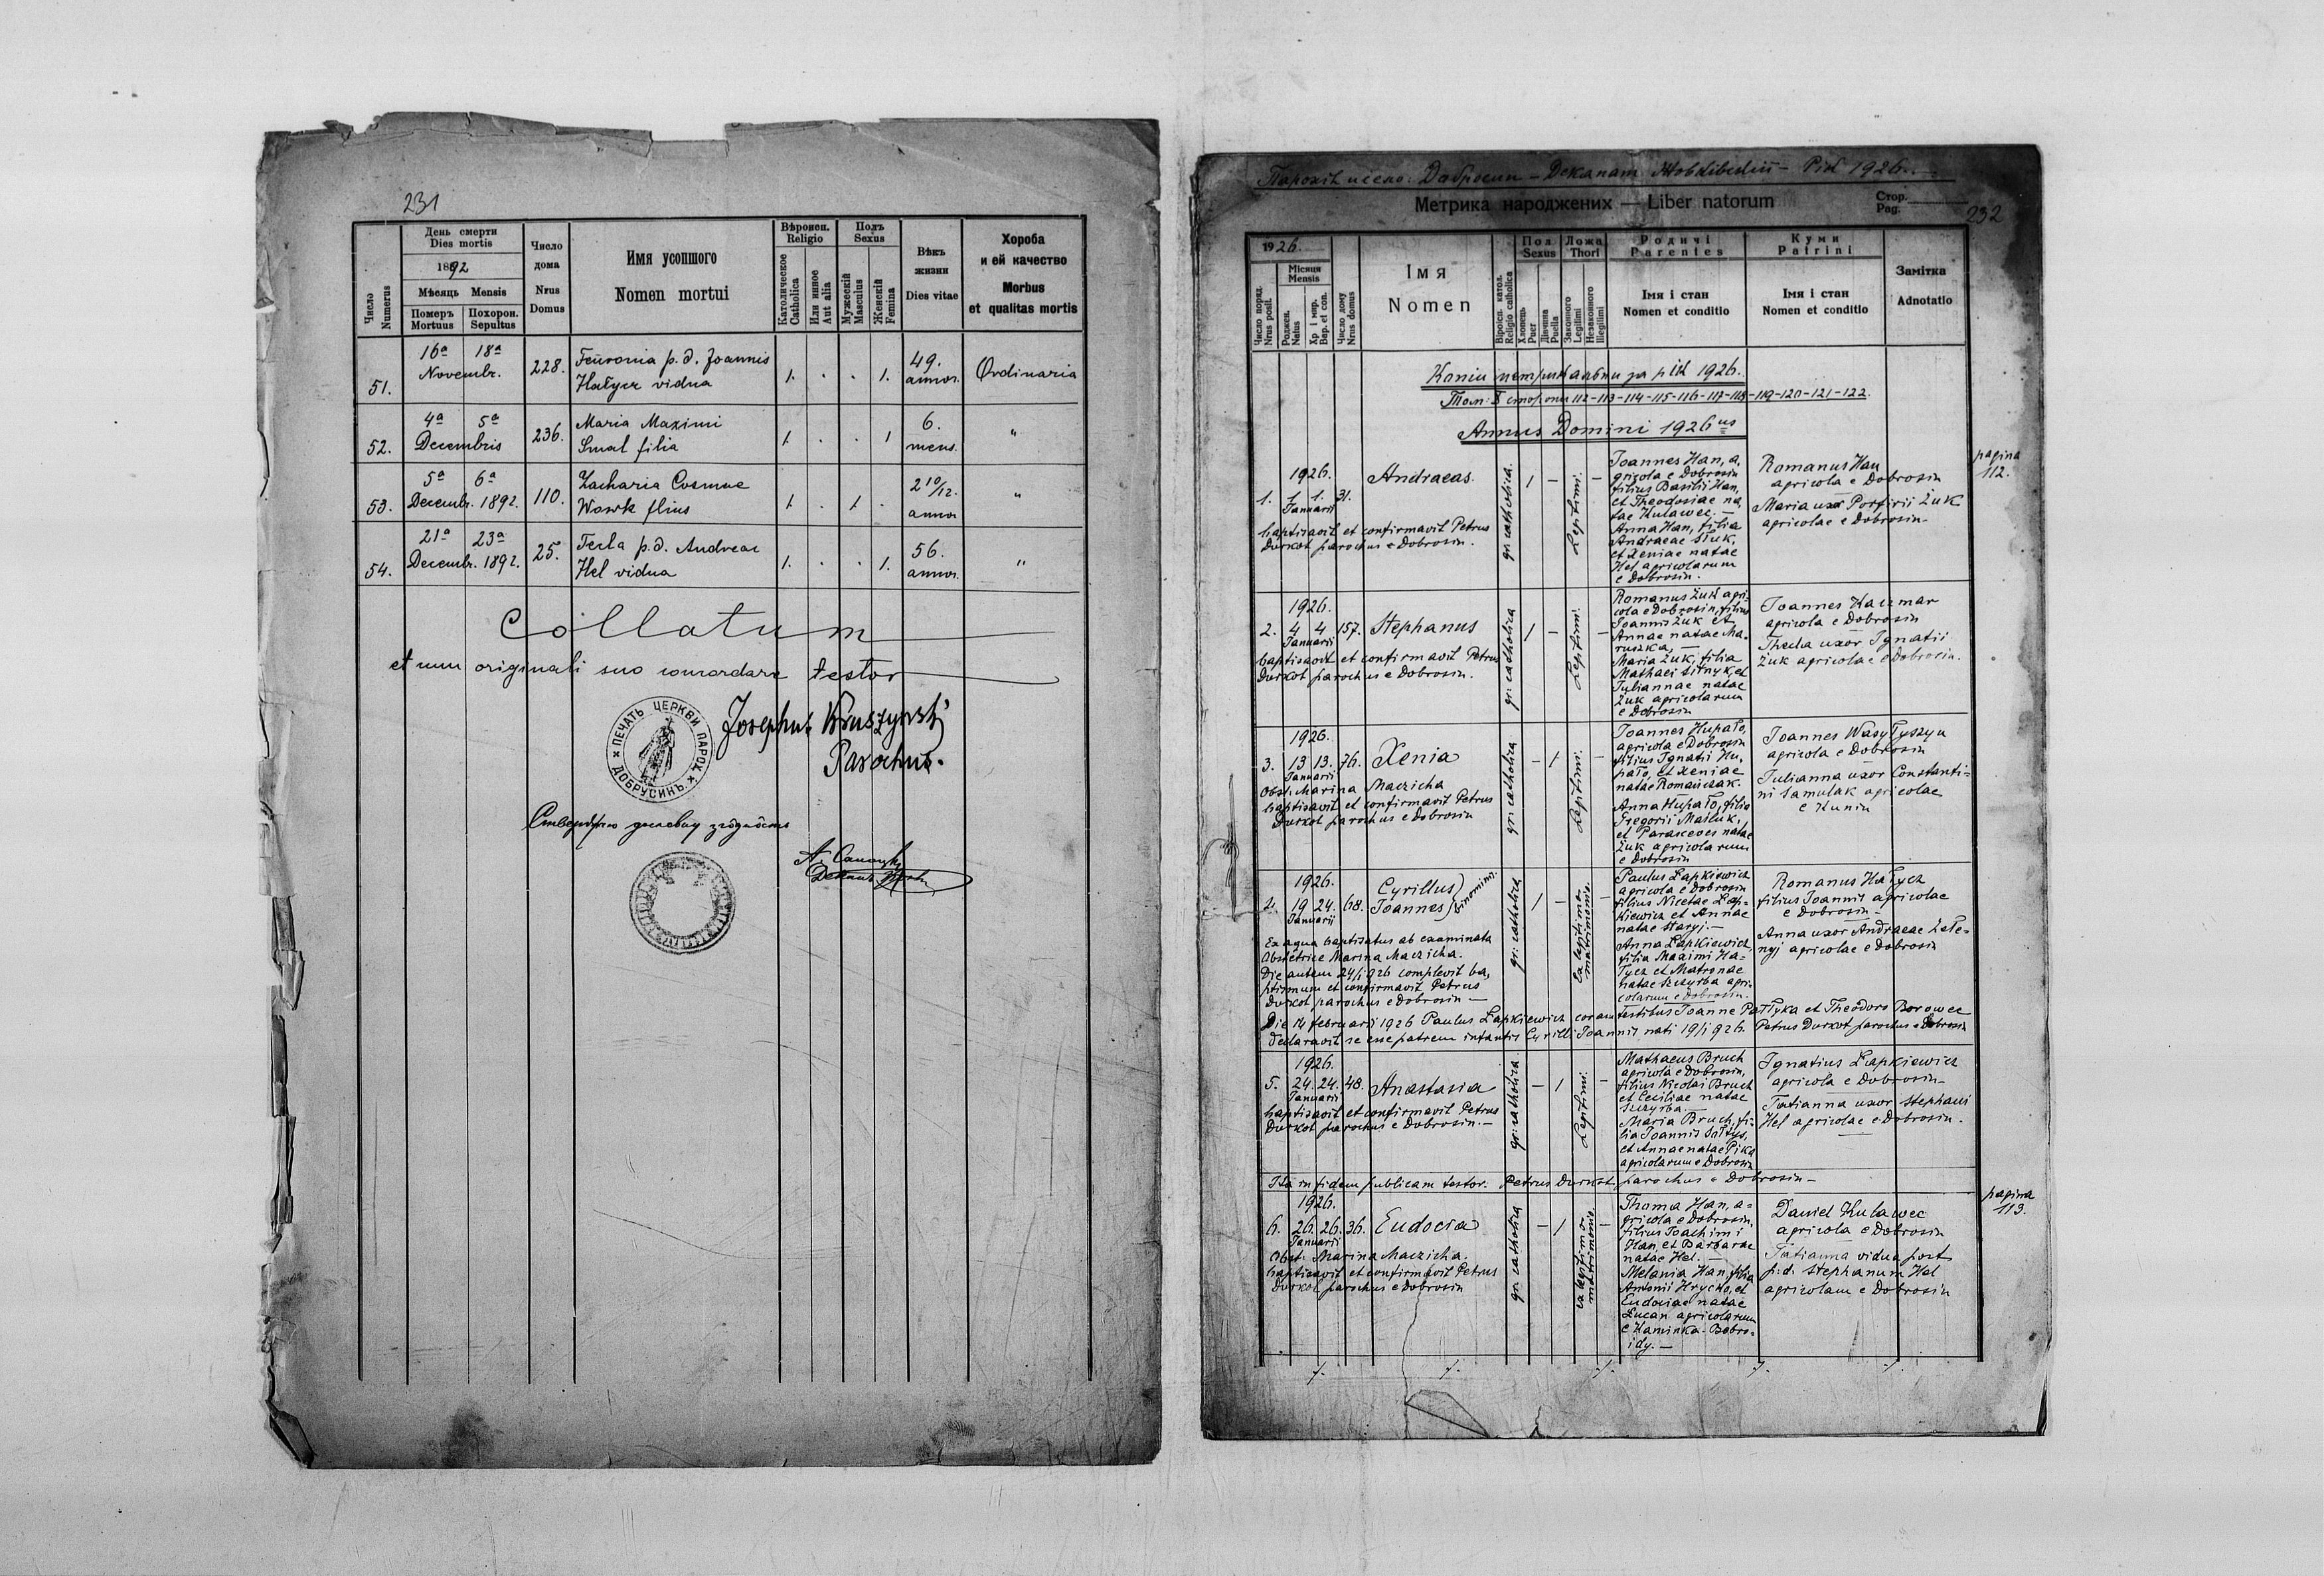 231
Число
Numerus
День смерти
Dies mortis
1892
Мѣсяць Mensis
Померъ
Mortuus
Похорон.
Sepultus
Число
дома
Nrus
Domus
Имя усопшого
Nomen mortui
Вѣроисп.
Religio
Католическое
Catholica
Или инное
Aut alia
Полъ
Sexus
Мужескій
Masculus
Женскій
Femina
Вѣкъ
жизни
Dies vitae
Хороба
и ей качество
Morbus
et qualitas mortis
51. 16a 18a Novembr. 228. Feuronia p. d. Joannis
Hałycz vidua 1. . . 1. 49. annor. Ordinaria
52. 4a 5a Decembris 236. Maria Maximi
Smal filia 1. . . 1 6. mens. "
53. 5a 6a Decembr. 1892. 110. Zacharia Cosmae
Wowk flius 1. . 1. . 2 10/12. annor "
54. 21a 23a Decembr. 1892. 25. Tecla p. d. Andreae
Hel vidua 1. . . 1. 56. annor. "
Collatum
et cum originali suo concordare testor
Josephus Kruszynski
Parochus.
ПЕЧАТЬ ЦЕРКВИ ПАРОХ. ДОБРУСИНЪ
Парохія село: Добросин – Деканат Жовківский – Рік 1926.
Метрика народжених — Liber natorum
Стор.
Pag.
232
1926.
Число поряд.
Nrus posit.
Місяця
Mensis
Роджен.
Natus
Хр. і мир.
Bap. et con.
Число дому
Nrus domus
Імя
Nomen
Віроісп. катол.
Religio catholica
Пол
Sexus
Хлопець
Puer
Дівчина
Puella
Ложа
Thori
Законного
Legitimi
Незаконного
Illegitimi
Родичі
Parentes
Імя і стан
Nomen et conditio
Куми
Patrini
Імя і стан
Nomen et conditio
Замітка
Adnotatio
Копії метрикальні за рік 1926.
Том: X сторони 112-113-114-115-116-117-118-119-120-121-122.
Annus Domini 1926us
pagina
112.
1926.
1. 1. 1. 31.
Januarii
Andraeas.
baptisavit et confirmavit Petrus
Durkot parochus e Dobrosin.
gr: catholica.
1 –
Legitimi.
–
Joannes Han, a,
gricola e Dobrosin
filius Basilii Han,
et Theodosiae na,
tae Kulawec. –
Anna Han, filia
Andraeae Stuk,
et Xeniae natae
Hel agricolarum
e Dobrosin.
Romanus Han
agricola e Dobrosin
Maria uxor Porfirii Żuk
agricolae e Dobrosin
1926.
2. 4 4 157.
Januarii
Stephanus
baptisavit et confirmavit Petrus
Durkot parochus e Dobrosin.
gr: catholica
1 –
Legitimi.
–
Romanus Żuk agri-
cola e Dobrosin, filius
Joannis Żuk et
Annae natae Ma-
ruszka, –
Maria Żuk, filia
Mathaei Sitnyk, et
Juliannae natae
Żuk agricolarum
e Dobrosin
Joannes Kaczmar
agricola e Dobrosin
Thecla uxor Ignatii
Żuk agricolae e Dobrosin.
1926.
3. 13 13. 76.
Januarii
Xenia
Obst: Marina Maczicha
baptisavit et confirmavit Petrus
Durkot parochus e Dobrosin
gr: catholica
– 1
Legitimi.
–
Joannes Hupało,
agricola e Dobrosin
filius Ignatii Hu,
pało, et Xeniae
natae Romańczak.
Anna Hupało, filia
Gregorii Maśluk,
et Parasceves natae
Żuk agricolarum
e Dobrosin
Joannes Wasyłyszyn
agricola e Dobrosin
Julianna uxor Constanti=
ni Samulak agricolae
e Kunin
1926.
19 24. 68.
Januarii
Cyrillus)
Joannes) binomin.
Ex aqua baptisatus ab examinata
Obstetrice Marina Maczicha.
Die autem 24/I 926 complevit ba,
ptismum et confirmavit Petrus
Durkot parochus e Dobrosin —
gr: catholica
1 –
ex legitimo
matrimonio.
–
Paulus Łapkiewicz
agricola e Dobrosin
filius Nicetae Łap-
kiewicz et Annae
natae Staryj. –
Anna Łapkiewicz,
filia Maximi Ha-
łycz et Matronae
natae Szczyrba agri-
colarum e Dobrosin.
Romanus Hałycz
filius Joannis agricolae
e Dobrosin –
Anna uxor Andraeae Zełe=
nyj agricolae e Dobrosin
Die 14 februarii 1926 Paulus Łapkiewicz coram testibus Joanne Pałłyka et Theodoro Borowec
declaravit se esse patrem infantis Cyrilli Joannis nati 19/I 926. Petrus Durkot parochus e Dobrosin
1926.
5. 24. 24. 48.
Januarii
Anastasia
baptisavit et confirmavit Petrus
Durkot parochus e Dobrosin. –
gr: catholica
– 1
Legitimi.
–
Mathaeus Bruch
agricola e Dobrosin,
filius Nicolai Bruch
et Ceciliae natae
Szczyrba –
Maria Bruch, fi-
lia Joannis Sołtys,
et Annae natae Pika
agricolarum e Dobrosin
Ignatius Łapkiewicz
agricola e Dobrosin –
Tatianna uxor Stephani
Hel agricolae e Dobrosin.
Ita in fidem publicam testor. Petrus Durkot parochus e Dobrosin –
pagina
113.
1926.
6. 26. 26. 36.
Januarii
Eudocia
Obst: Marina Maczicha.
baptisavit et confirmavit Petrus
Durkot parochus e Dobrosin
gr: catholica
– 1
ex legitimo
matrimonio.
–
Thoma Han, a=
gricola e Dobrosin,
filius Joachimi
Han, et Barbarae
natae Hel. –
Melania Han, filia
Antonii Hrycko, et
Eudociae natae
Łucan agricolarum
e Kaminka-Bobro=
idy. —
Daniel Kulawec
agricola e Dobrosin
Tatianna vidua post
p: d: Stephanum Hel
agricolam e Dobrosin